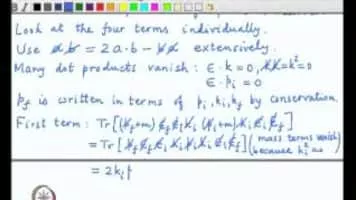 Look at the four terms individually.
Use a̸b̸ = 2a·b - b̸a̸ extensively.
Many dot products vanish: ε·k=0, k̸k̸=k²=0
ε·p_i = 0
p_f is written in terms of p_i, k_i, k_f by conservation.
First term: Tr[(p̸_f+m) ε̸_f ε̸_i k̸_i (p̸_i+m) k̸_i ε̸_i ε̸_f]
= Tr[p̸_f ε̸_f ε̸_i k̸_i p̸_i k̸_i ε̸_i ε̸_f] (mass terms vanish
because k_i² =
= 2k_i p